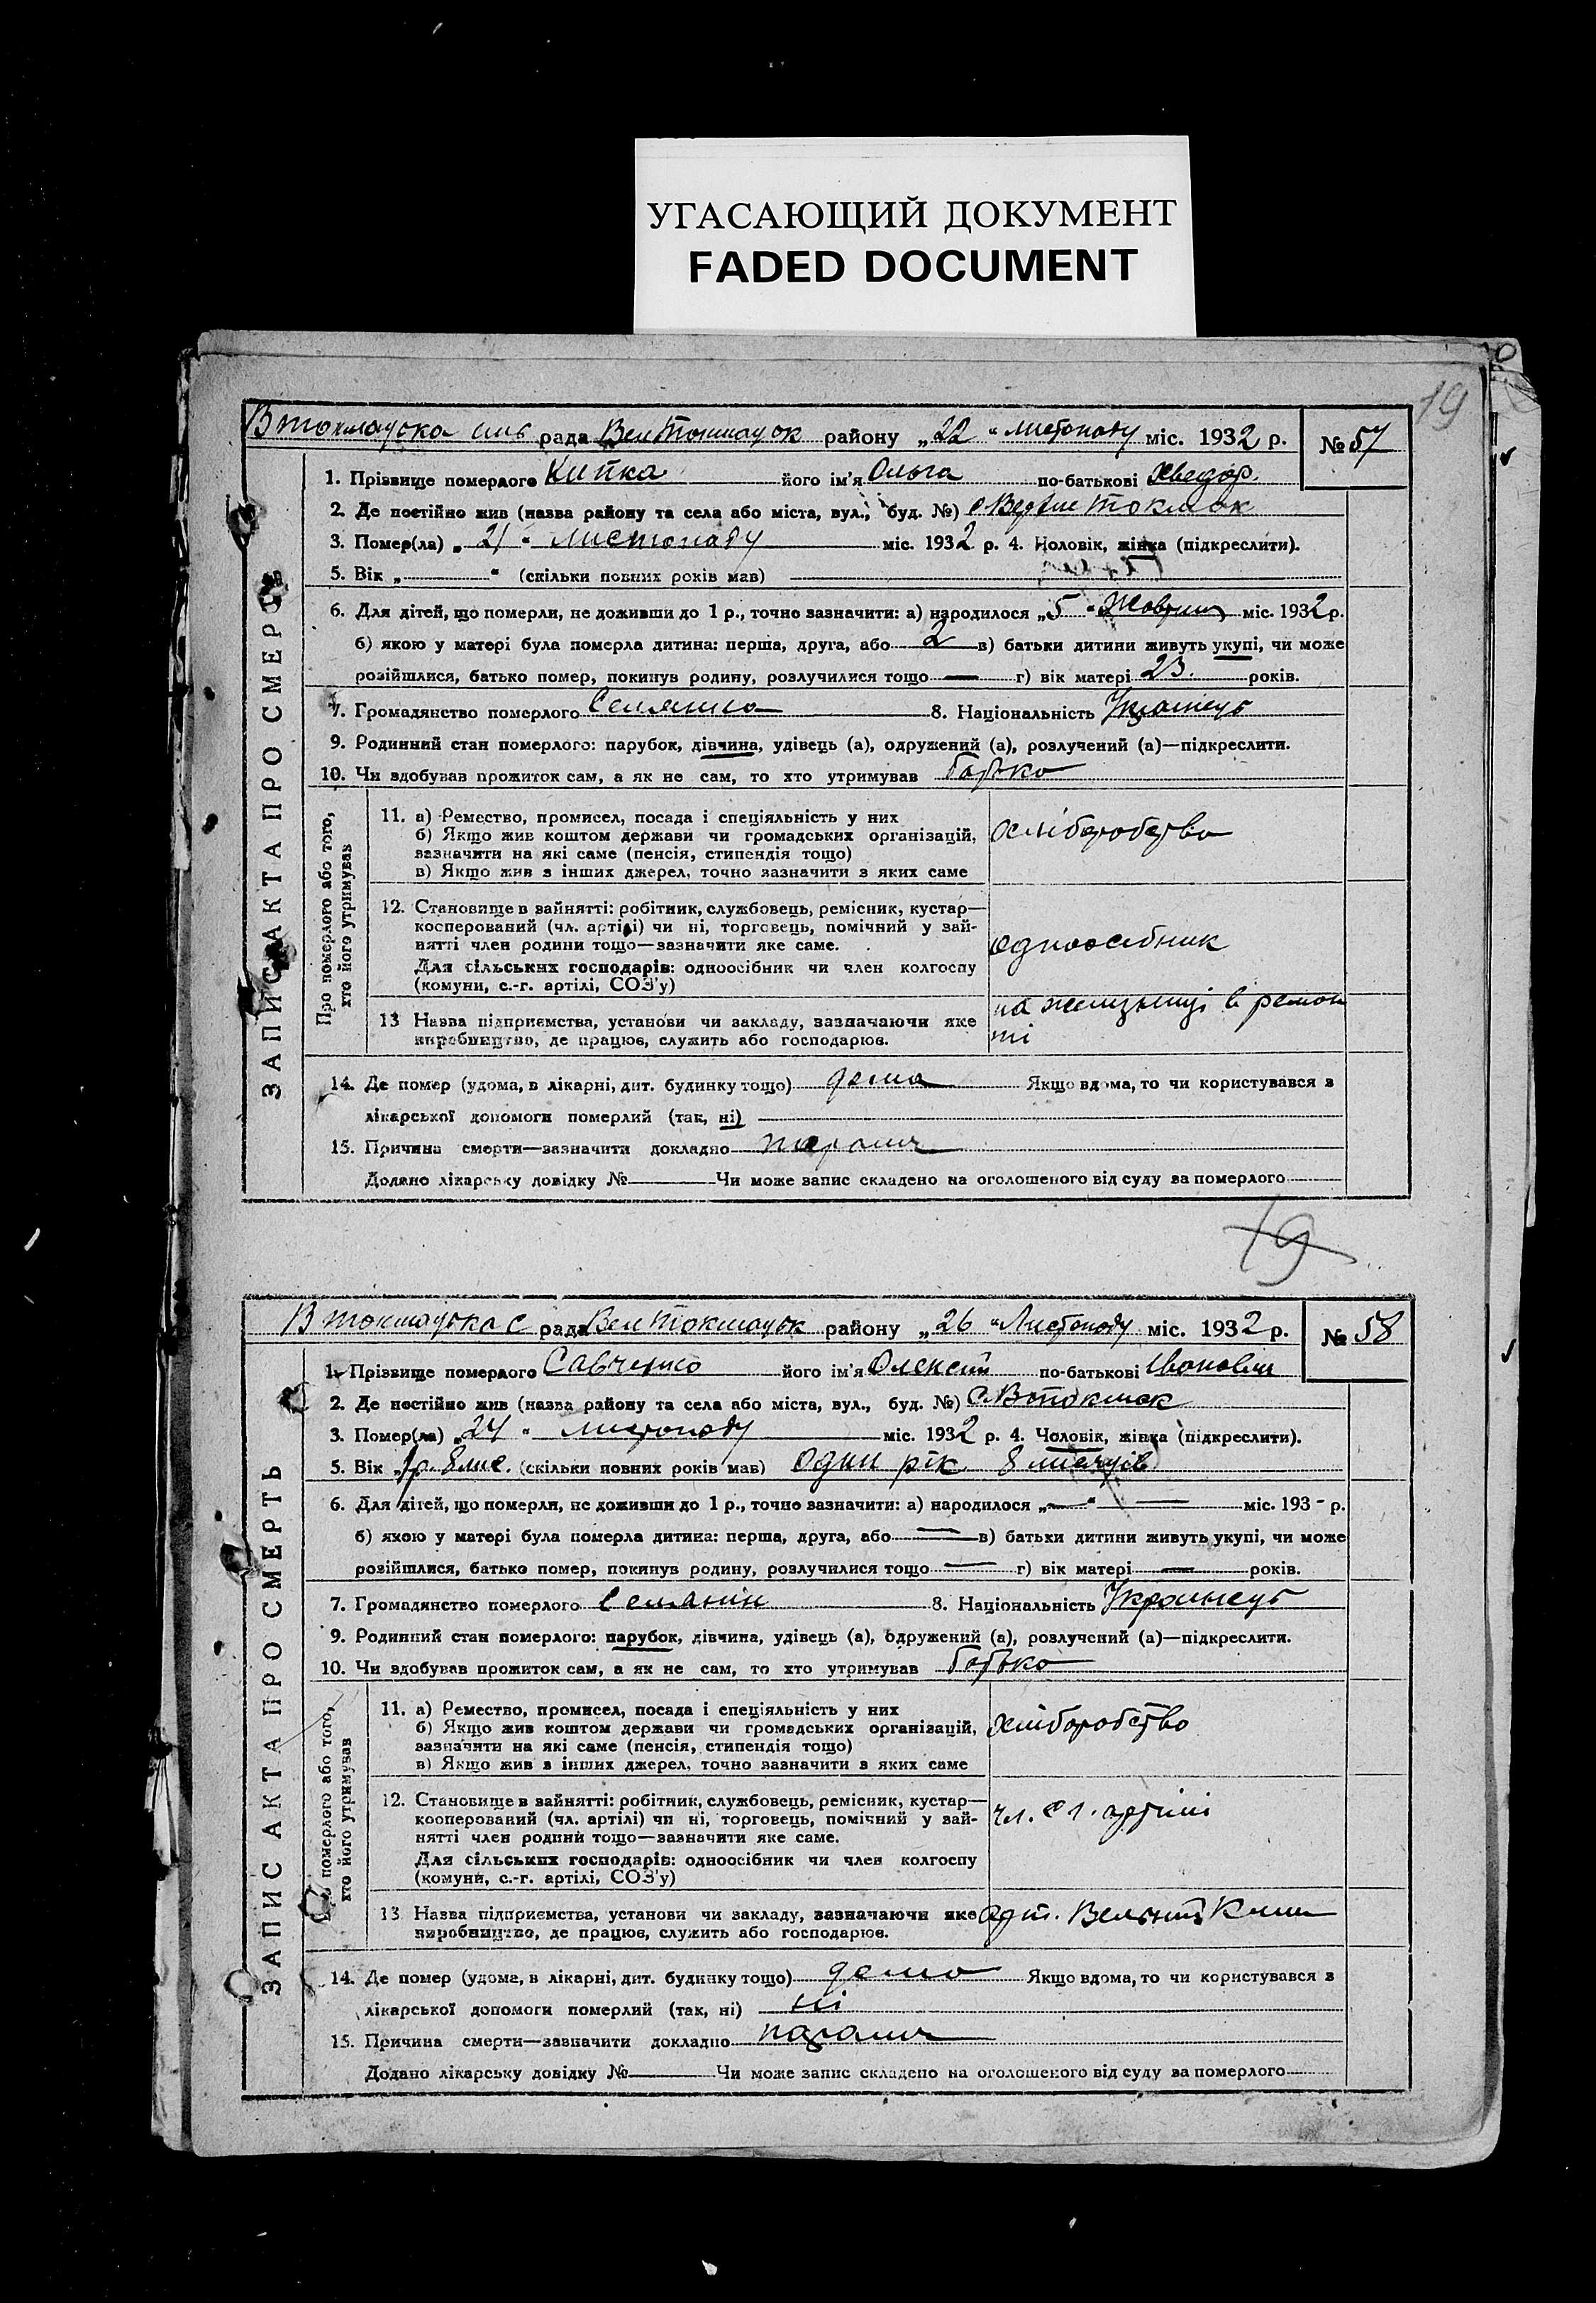 УГАСАЮЩИЙ ДОКУМЕНТ
FADED DOCUMENT
19
В токмацька сіль рада Вел Токмацьк району „22“ листопаду міс. 1932 р. № 57
1. Прізвище померлого Кипка його ім'я Ольга по-батькові Хведор.
2. Де постійно жив (назва району та села або міста, вул., буд. №) с Вел Токмак
3. Помер(ла) „21“ листопаду міс. 1932 р. 4. Чоловік, жінка (підкреслити).
5. Вік „ “ (скільки повних років мав)
6. Для дітей, що померли, не доживши до 1 р., точно зазначити: а) народилося „5“ Жовтня міс. 1932 р.
б) якою у матері була померла дитина: перша, друга, або 2 в) батьки дитини живуть укупі, чи може
розійшлися, батько помер, покинув родину, розлучилися тощо — г) вік матері 23. років.
7. Громадянство померлого Селянка 8. Національність Українець
9. Родинний стан померлого: парубок, дівчина, удівець (а), одружений (а), розлучений (а)—підкреслити.
10. Чи здобував прожиток сам, а як не сам, то хто утримував батько
ЗАПИС АКТА ПРО СМЕРТЬ
Про померлого або того,
хто його утримував
11. а) Ремество, промисел, посада і спеціяльність у них
б) Якщо жив коштом держави чи громадських організацій,
зазначити на які саме (пенсія, стипендія тощо)
в) Якщо жив з інших джерел, точно зазначити з яких саме
хліборобство
12. Становище в зайнятті: робітник, службовець, ремісник, кустар—
коопер​ований (чл. артілі) чи ні, торговець, помічний у зай-
нятті член родини тощо—зазначити яке саме.
Для сільських господарів: одноосібник чи член колгоспу
(комуни, с.-г. артілі, СОЗ'у)
одноосібник
13 Назва підприємства, установи чи закладу, зазначаючи яке
виробництво, де працює, служить або господарює.
на в ремон
ті
14. Де помер (удома, в лікарні, дит. будинку тощо) дома Якщо вдома, то чи користувався з
лікарської допомоги померлий (так, ні)
15. Причина смерти—зазначити докладно параліч
Додано лікарську довідку № Чи може запис складено на оголошеного від суду за померлого
19
В токмацька с рада Вел Токмацьк району „26“ Листопаду міс. 1932 р. № 58
1. Прізвище померлого Савченко його ім'я Олексій по-батькові Іванович
2. Де постійно жив (назва району та села або міста, вул., буд. №) с В токмак
3. Помер(ла) „24“ листопаду міс. 1932 р. 4. Чоловік, жінка (підкреслити).
5. Вік „1р. 8 міс. (скільки повних років мав) Один рік 8 місяців
6. Для дітей, що померли, не доживши до 1 р., точно зазначити: а) народилося „—“ — міс. 193- р.
б) якою у матері була померла дитина: перша, друга, або — в) батьки дитини живуть укупі, чи може
розійшлися, батько помер, покинув родину, розлучилися тощо — г) вік матері — років.
7. Громадянство померлого Селянін 8. Національність Українець
9. Родинний стан померлого: парубок, дівчина, удівець (а), одружений (а), розлучений (а)—підкреслити.
10. Чи здобував прожиток сам, а як не сам, то хто утримував батько
ЗАПИС АКТА ПРО СМЕРТЬ
померлого або того,
хто його утримував
11. а) Ремество, промисел, посада і спеціяльність у них
б) Якщо жив коштом держави чи громадських організацій,
зазначити на які саме (пенсія, стипендія тощо)
в) Якщо жив з інших джерел, точно зазначити з яких саме
хліборобство
12. Становище в зайнятті: робітник, службовець, ремісник, кустар—
кооперований (чл. артілі) чи ні, торговець, помічний у зай-
нятті член родини тощо—зазначити яке саме.
Для сільських господарів: одноосібник чи член колгоспу
(комуни, с.-г. артілі, СОЗ'у)
чл. с г. артілі
13 Назва підприємства, установи чи закладу, зазначаючи яке
виробництво, де працює, служить або господарює.
арт.
14. Де помер (удома, в лікарні, дит. будинку тощо) дома Якщо вдома, то чи користувався з
лікарської допомоги померлий (так, ні) ні
15. Причина смерти—зазначити докладно параліч
Додано лікарську довідку № Чи може запис складено на оголошеного від суду за померлого